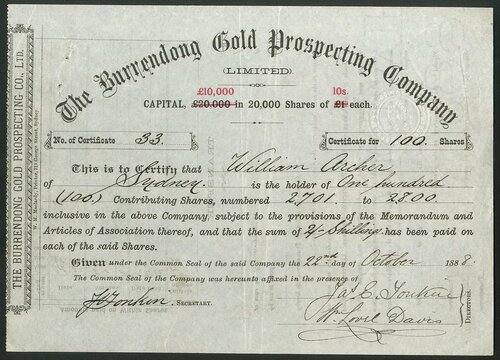 The Burrendong Gold Prospecting Company
(LIMITED).
£10,000 10s.
CAPITAL, £20,000 in 20,000 Shares of £1 each.
No. of Certificate 33. Certificate for 100 Shares
This is to Certify that William Archer
of Sydney. is the holder of One hundred
(100.) Contributing Shares, numbered 2701 to 2800
inclusive in the above Company, subject to the provisions of the Memorandum and
Articles of Association thereof, and that the sum of 2/- Shilling has been paid on
each of the said Shares.
Given under the Common Seal of the said Company the 22nd day of October 1888.
The Common Seal of the Company was hereunto affixed in the presence of
SECRETARY.
Jas E. Tonkin
Wm Lovel Davis
DIRECTORS.
THE BURRENDONG GOLD PROSPECTING CO., LTD.